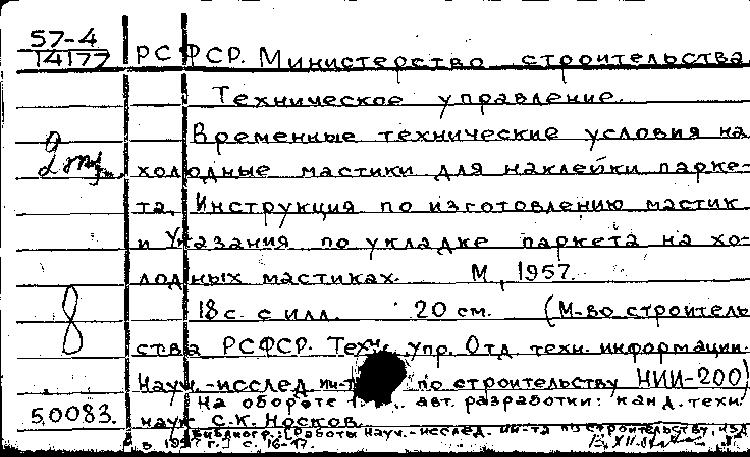 57-4
14177
РСФСР. Министерство строительства.
Техническое управление.
Временные технические условия на
холодные мастики для наклейки парке-
та, Инструкция по изготовлению мастик
и Указания по укладке паркета на хо-
лодных мастиках. М, 1957.
18 с. с илл. 20 см. (М-во строитель
ства РСФСР. Техн. упр. Отд. техн. информации.
Науч.-исслед. ин-т по строительству НИИ-200)
На обороте авт. разработки: канд. техн.
наук С.К. Носков.
Библиогр.: [Работы Науч.-исслед. ин-та по строительству, изд.
в 19 7 г.] с. 16-17.
8
50083.